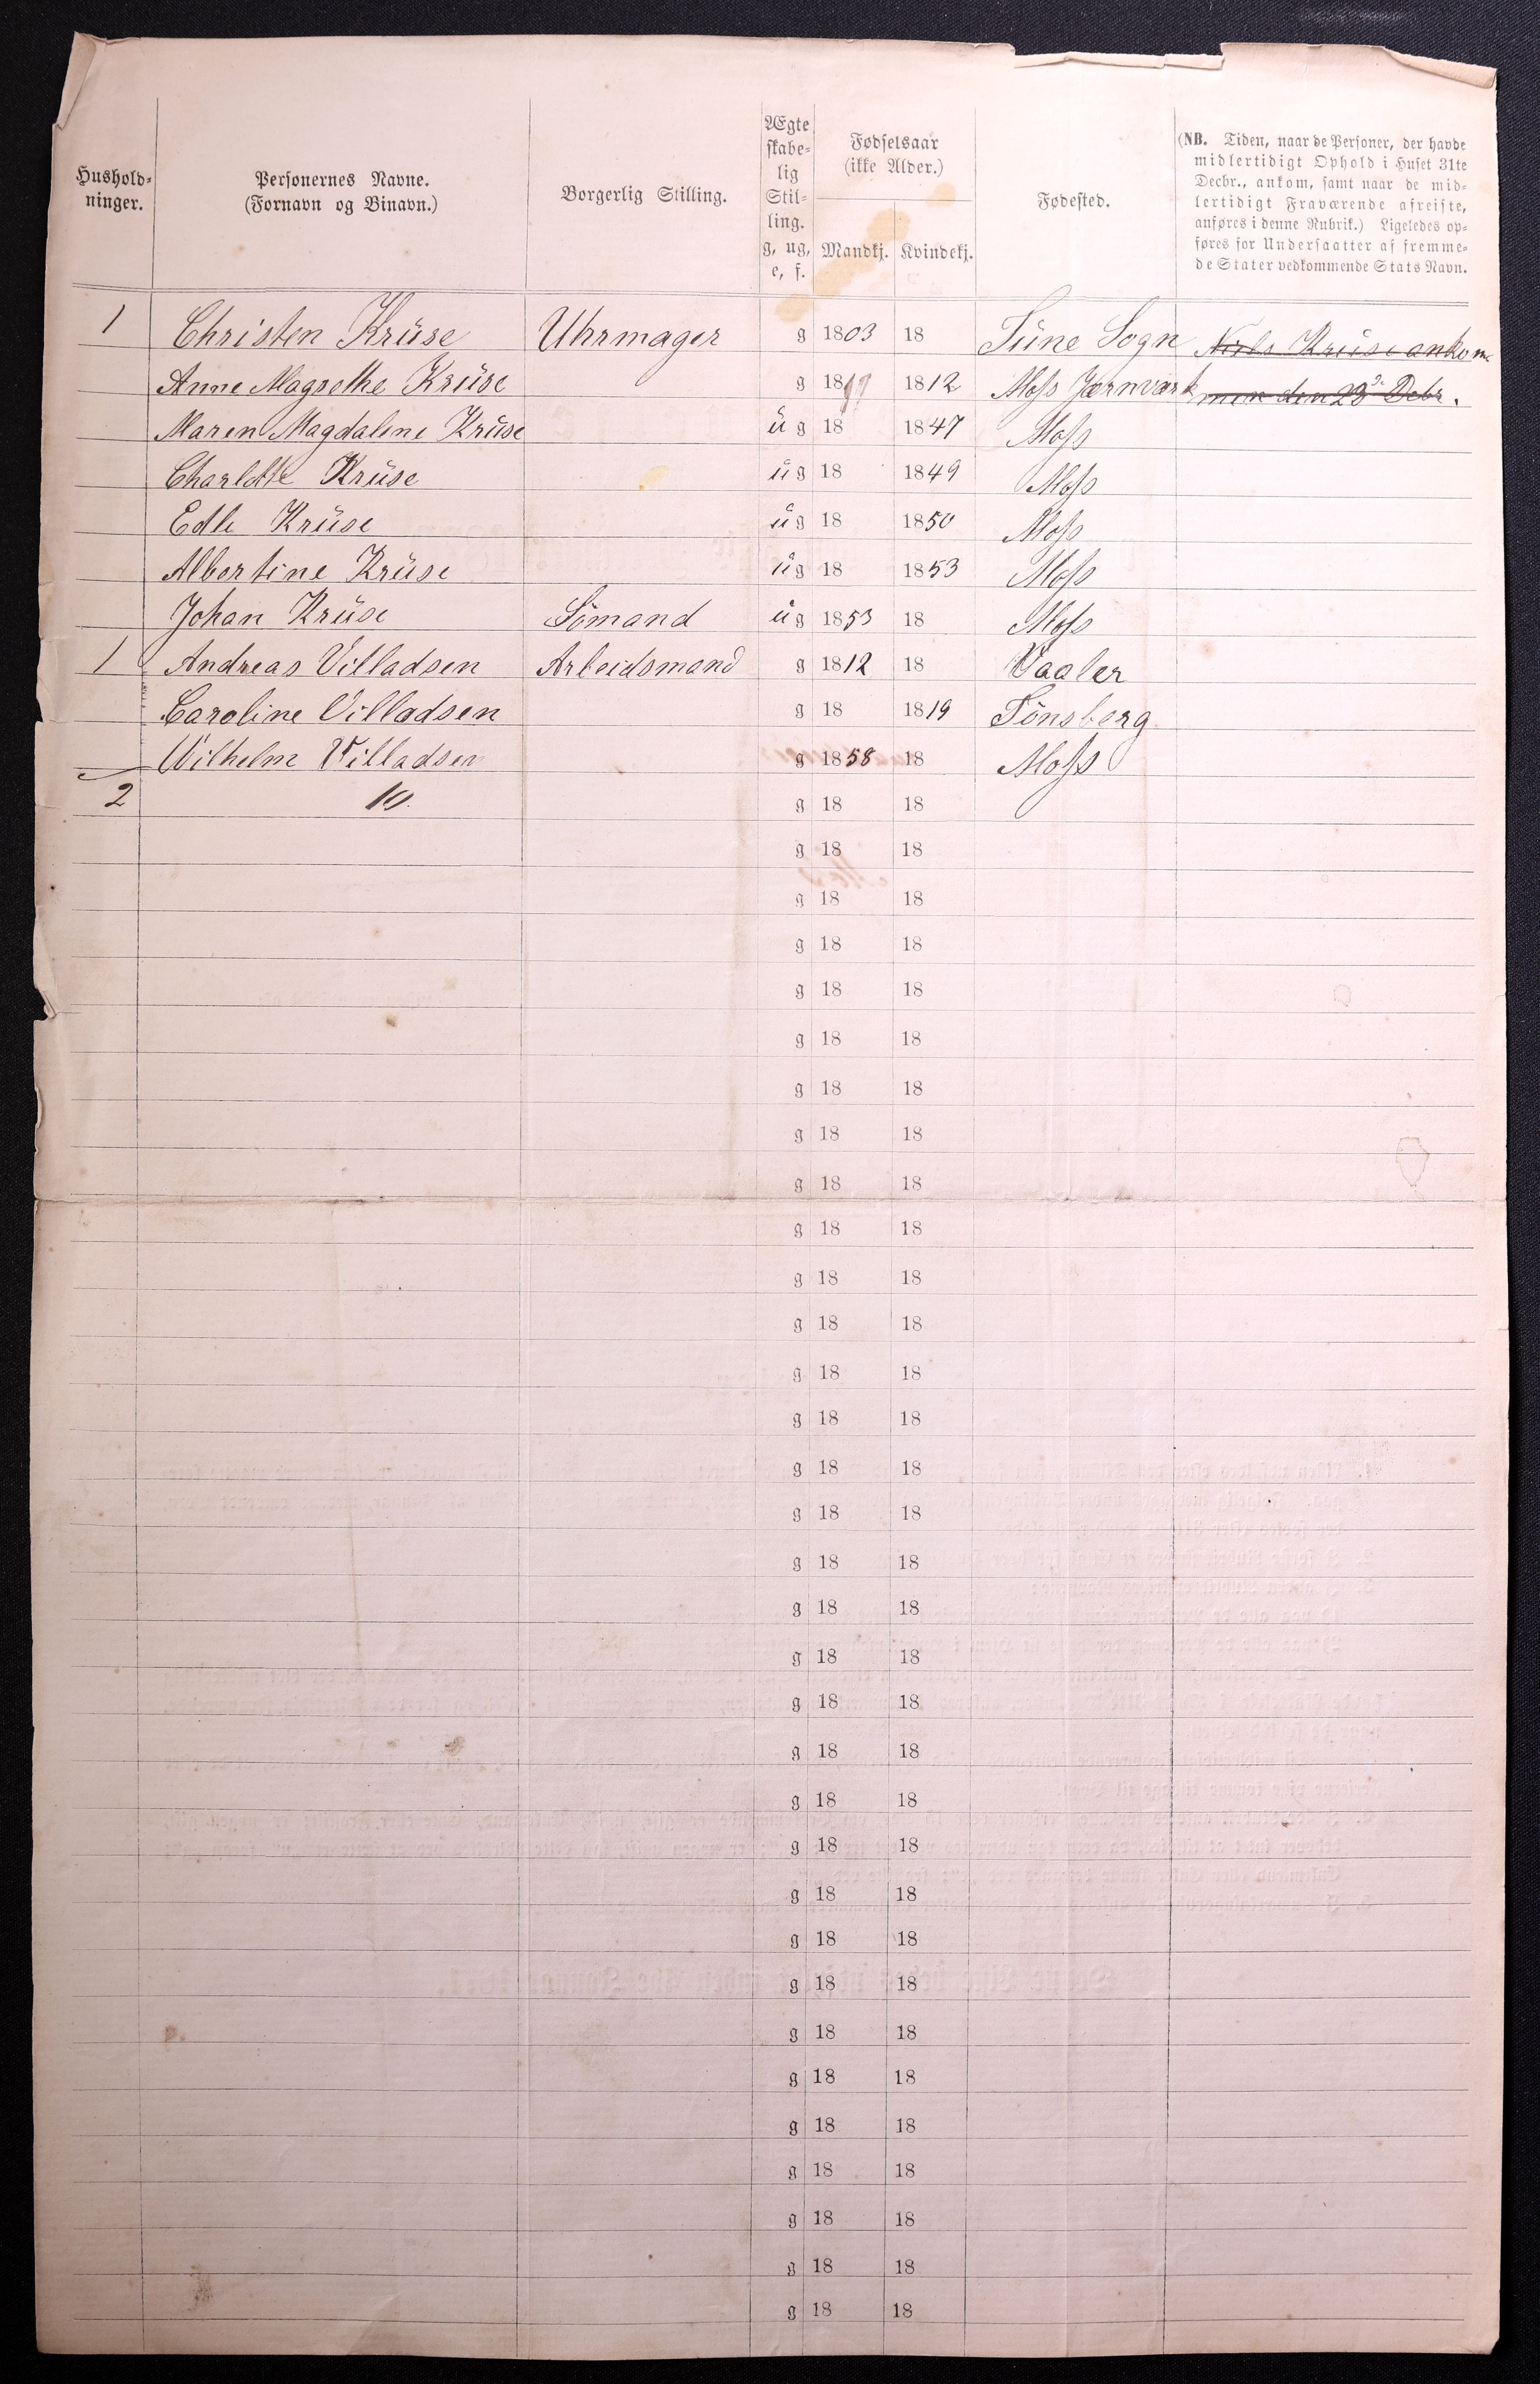 Hushold-
ninger.
Personernes Navne.
(Fornavn og Binavn.)
Borgerlig Stilling.
Ægte
skabe-
lig
Stil-
ling.
g, ug,
e, f.
Fødselsaar
(ikke Alder.)
Mandkj. Kvindekj.
Fødested.
(NB. Tiden, naar de Personer, der havde
midlertidigt Ophold i Huset 31te
Decbr., ankom, samt naar de mid-
lertidigt Fraværende afreiste,
anføres i denne Rubrik.) Ligeledes op-
føres for Undersaatter af fremme-
de Stater vedkommende Stats Navn.
1 Christen Krüse Uhrmager g 1803 18 Tüne Sogn Niels Krüse ankom
Anne Magrethe Krüse g 18 1812 Moss Jærnværk men den 23de Debr.
Maren Magdalene Krüse ug 18 1847 Moss
Charlotte Krüse ug 18 1849 Moss
Edle Krüse ug 18 1850 Moss
Albertine Krüse ug 18 1853 Moss
Johan Krüse Sömand ug 1853 18 Moss
1 Andreas Villadsen Arbeidsmand g 1812 18 Vaaler
Caroline Villadsen g 18 1819 Tönsberg
Wilhelm Villadsen g 1858 18 Moss
2 10. g 18 18
g 18 18
g 18 18
g 18 18
g 18 18
g 18 18
g 18 18
g 18 18
g 18 18
g 18 18
g 18 18
g 18 18
g 18 18
g 18 18
g 18 18
g 18 18
g 18 18
g 18 18
g 18 18
g 18 18
g 18 18
g 18 18
g 18 18
g 18 18
g 18 18
g 18 18
g 18 18
g 18 18
g 18 18
g 18 18
g 18 18
g 18 18
g 18 18